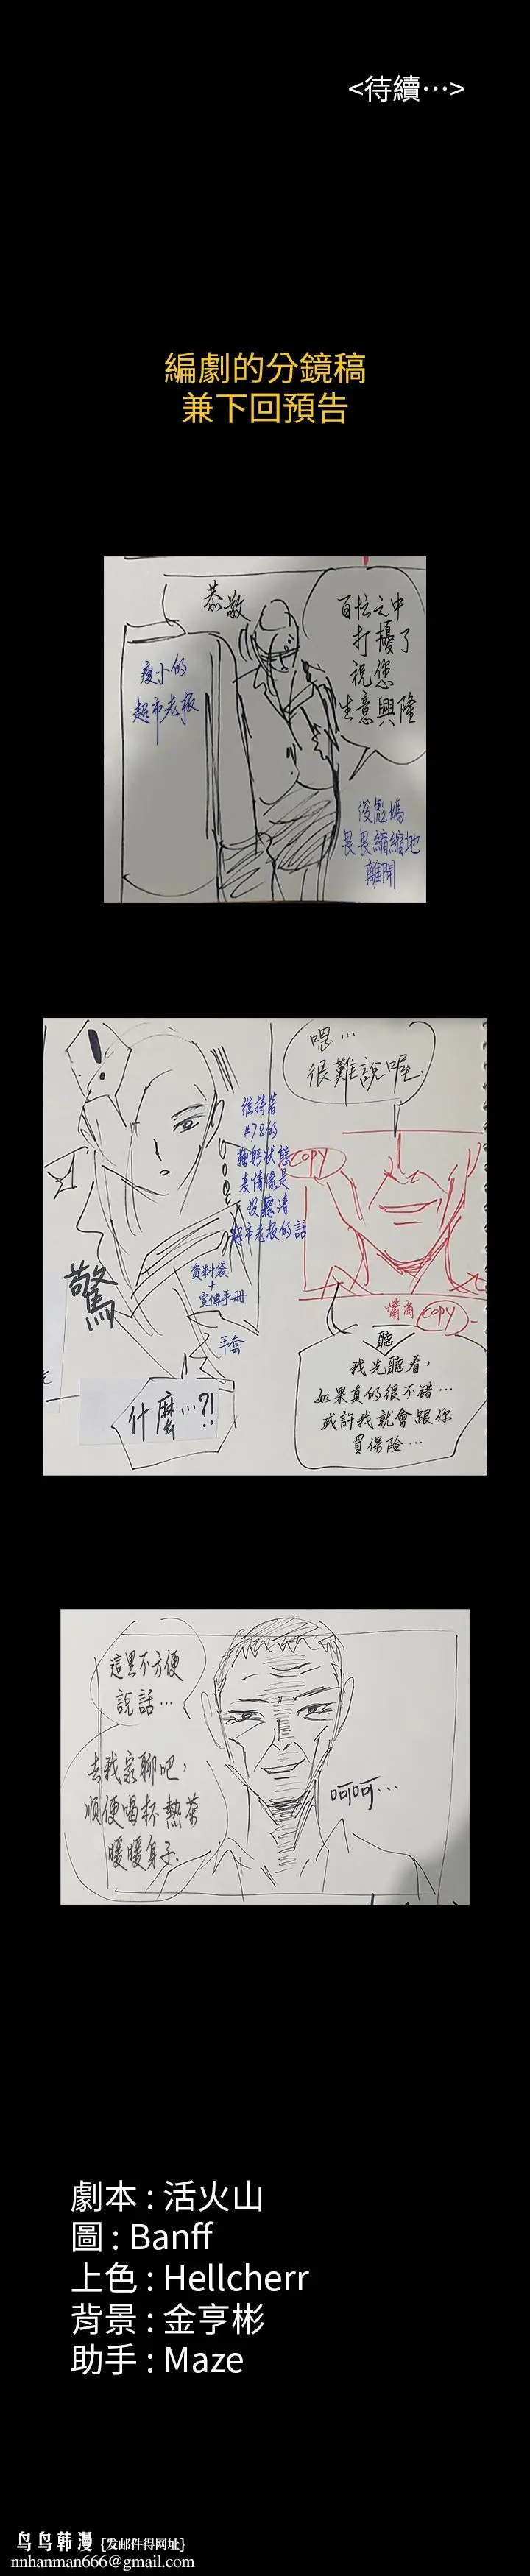 <待續⋯>
編劇的分鏡稿
兼下回預告
恭敬
百忙之中
打擾了
祝您
生意興隆
瘦小的
超市老板
俊彪媽
畏畏縮縮地
離開
嗯⋯
很難說喔.
!
維持著
#78的
鞠躬狀態
表情像是
沒聽清
超市老板的話
COPY
驚
资料袋
+
宣傳手冊
手套
嘴角 COPY
聽
我先聽看,
如果真的很不錯⋯
或許我就會跟你
買保險⋯
什麼⋯?!
這里不方便
說話⋯
去我家聊吧,
順便喝杯熱茶
暖暖身子.
呵呵⋯
劇本 : 活火山
圖 : Banff
上色 : Hellcherr
背景 : 金亨彬
助手 : Maze
鸟鸟韩漫 {发邮件得网址}
nnhanman666@gmail.com